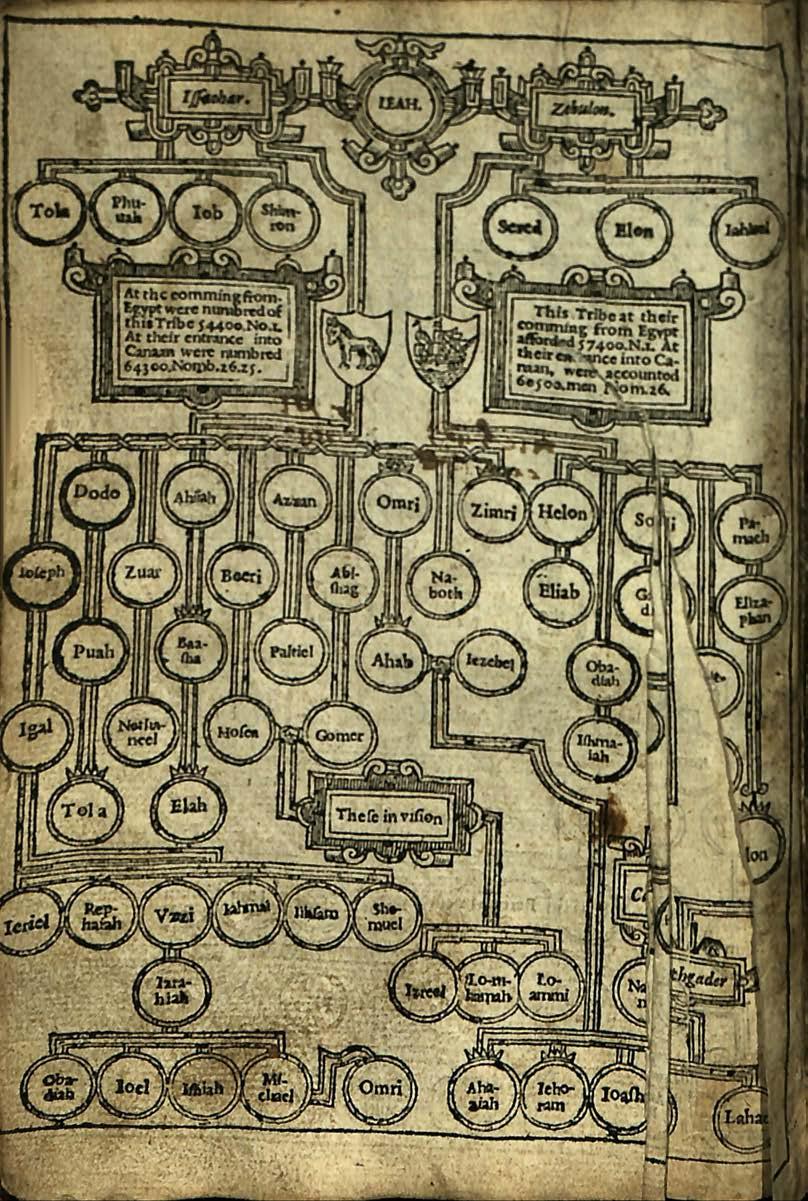 Issachar.
LEAH.
Zebulon.
Tola
Phu-
uah
Iob
Shim-
ron
Sered
Elon
Iahleel
At the comming from
Egypt were numbred of
this Tribe 54400.No.1.
At their entrance into
Canaan were numbred
64300.Nomb.26.25.
This Tribe at their
comming from Egypt
afforded 57400.N.1. At
their en ance into Ca-
naan, were accounted
60500.men Nom.26.
Dodo
Ahiiah
Azzan
Omri
Zimri
Helon
So i
Pa-
rnach
Ioseph
Zuar
Beeri
Abi-
shag
Na-
both
Eliab
Ga
di
Eliza-
phan
Puah
Baa-
sha
Paltiel
Ahab
Iezebel
Oba-
diah
Igal
Netha-
neel
Hosea
Gomer
Ishma-
iah
Tola
Elah
These in vision
lon
Ieriel
Rep-
haiah
Vzzi
Iahmai
Iibsam
She-
muel
Izra-
hiah
Izreel
Lo-ru-
hamah
Lo-
ammi
Na
thgader
Oba-
diah
Ioel
Ishiah
Mi-
chael
Omri
Aha-
ziah
Ieho-
ram
Ioash
Laha